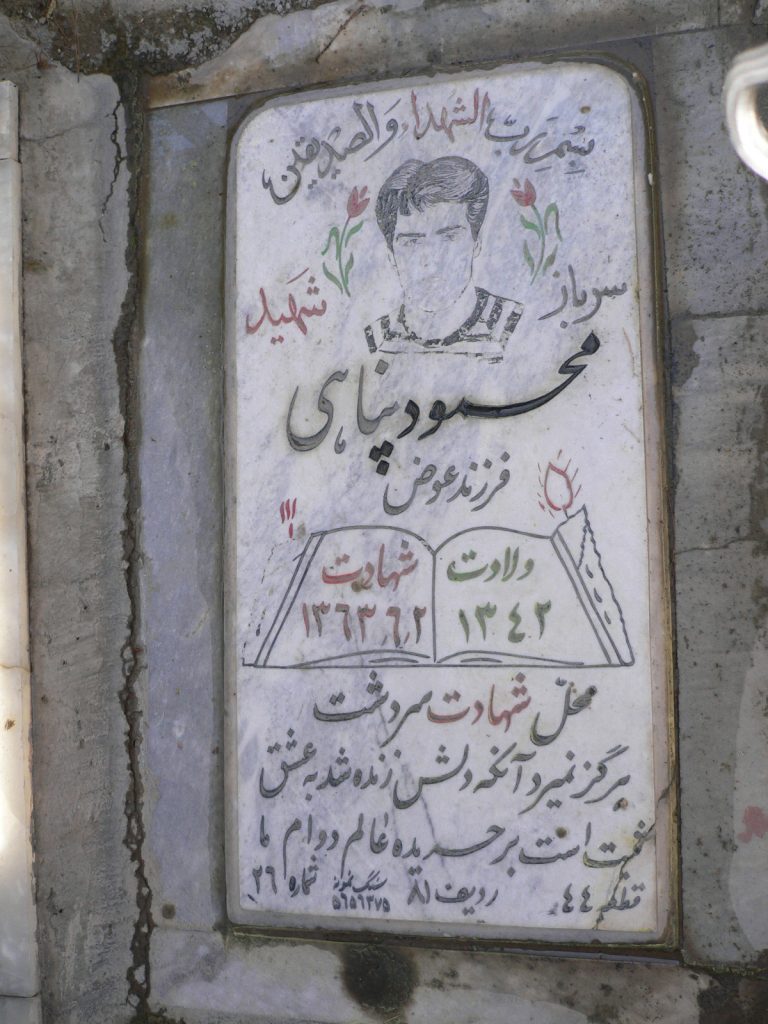 بِسْمِ رَبِّ الشُهَداءِ وَالصِدّیقین
سرباز شَهید
محمود پناهی
فرزند عوض
ولادت
۱۳۴۲
شهادت
۱۳۶۳.۶.۲
محلّ شهادت سردشت
هرگز نمیرد آنکه دلش زنده شد به عشق
ثبت است بر جریده عالم دوام ما
قطعه ۴۴ ردیف ۸۱ شماره ۲۶
سنگ نمونه
۵۶۵۶۳۷۵